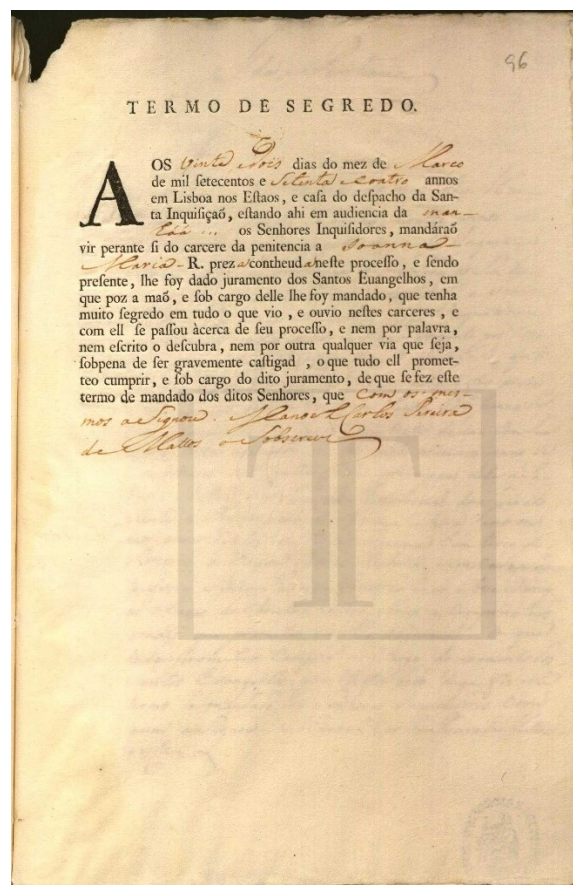 96
TERMO DE SEGREDO.
AOS Vinte e dois dias do mez de Marco
de mil ſetecentos e Setenta e coatro annos
em Lisboa nos Eſtaos, e caſa do deſpacho da San-
ta Inquiſiçaõ, eſtando ahi em audiencia da man-
hãa ... os Senhores Inquiſidores, mandáraõ
vir perante ſi do carcere da penitencia a Joanna
Maria - R. preza contheuda neſte proceſſo, e ſendo
preſente, lhe foy dado juramento dos Santos Euangelhos, em
que poz a maõ, e ſob cargo delle lhe foy mandado, que tenha
muito ſegredo em tudo o que vio, e ouvio neſtes carceres, e
com ell ſe paſſou àcerca de ſeu proceſſo, e nem por palavra,
nem eſcrito o deſcubra, nem por outra qualquer via que ſeja,
ſobpena de ſer gravemente caſtigad , o que tudo ell promet-
teo cumprir, e ſob cargo do dito juramento, de que ſe fez eſte
termo de mandado dos ditos Senhores, que com os mes-
mos aSignou. Manoel Carlos
de Mattos o Sobscrevi
T